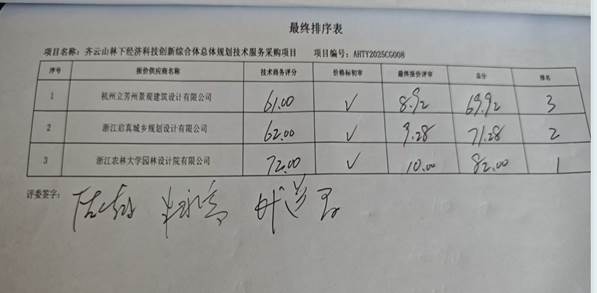 最终排序表
项目名称：齐云山林下经济科技创新综合体总体规划技术服务采购项目 项目编号：AHTY2025CG008
序号 报价供应商名称 技术商务评分 价格标初审 最终报价评审 总分 排名
1 杭州立芳州景观建筑设计有限公司 61.00 √ 8.92 69.92 3
2 浙江启真城乡规划设计有限公司 62.00 √ 9.28 71.28 2
3 浙江农林大学园林设计院有限公司 72.00 √ 10.00 82.00 1
评委签字：